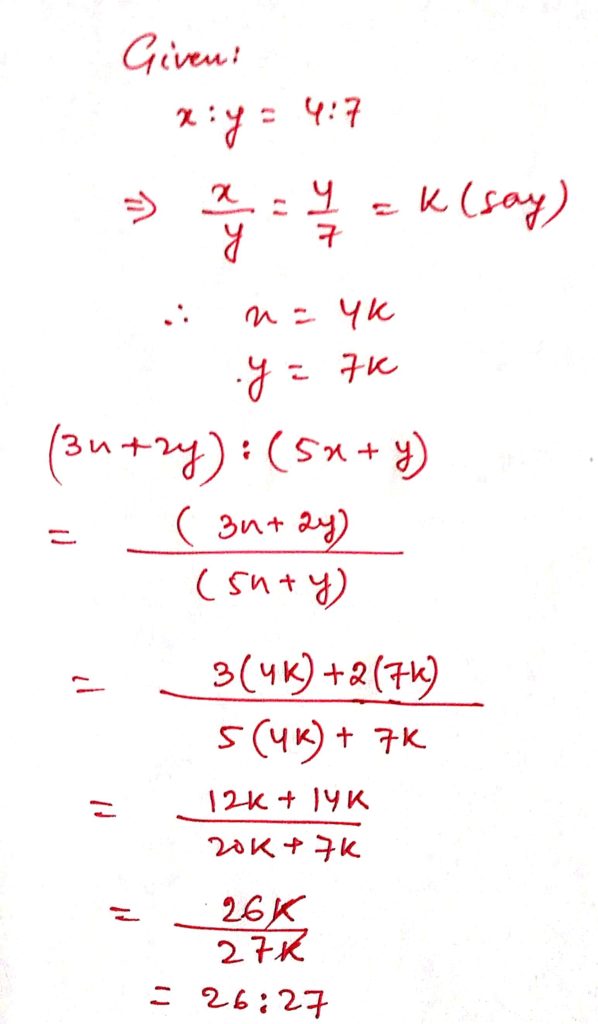 Given:
x:y = 4:7
⇒ x/y = 4/7 = K (say)
∴ x = 4K
.y = 7K
(3x+2y) : (5x+y)
= (3x+2y)/(5x+y)
= 3(4K)+2(7K)/5(4K)+7K
= 12K+14K/20K+7K
= 26K/27K
= 26:27